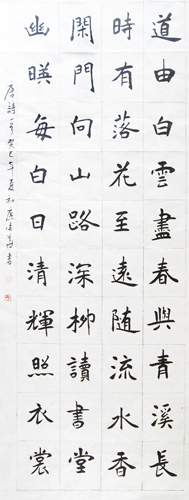 道由白雲盡春與青溪長
時有落花至遠随流水香
閑門向山路深柳讀書堂
幽暎每白日清輝照衣裳
唐詩一首癸巳年夏書